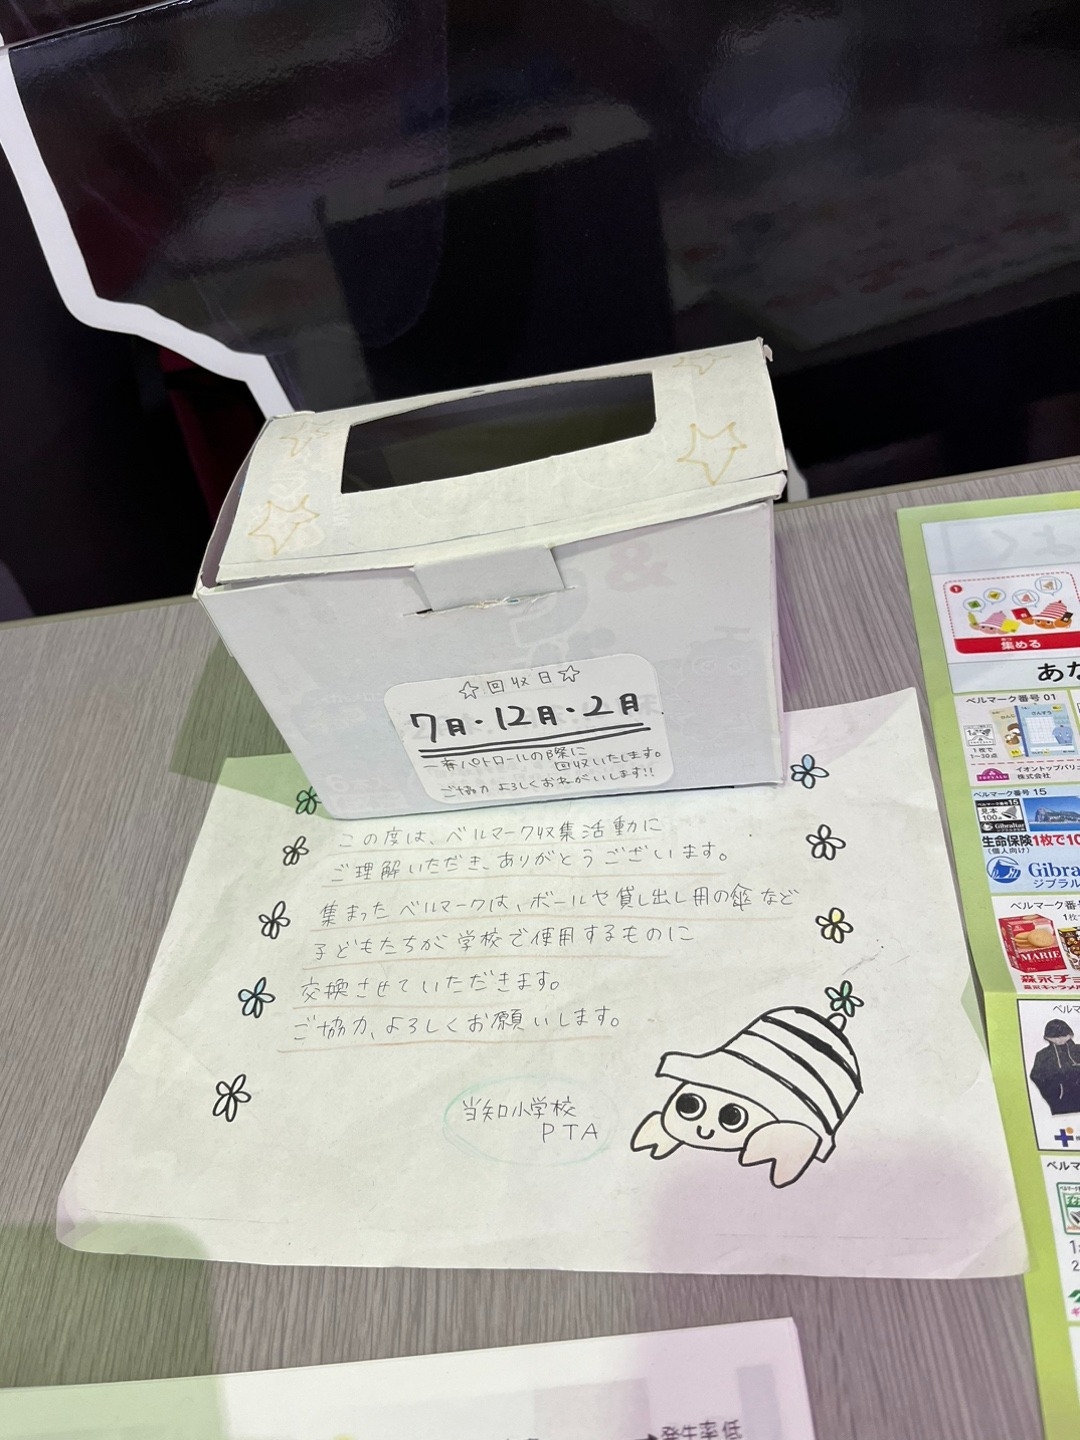 ☆回収日☆
7月・12月・2月
一斉パトロールの際に
回収いたします。
ご協力よろしくおねがいします!!
この度は、ベルマーク収集活動に
ご理解いただき、ありがとうございます。
集まったベルマークは、ボールや貸し出し用の傘など
子どもたちが学校で使用するものに
交換させていただきます。
ご協力、よろしくお願いします。
当知小学校
PTA
1
集める
あな
ベルマーク番号 01
1枚で
1〜30点
イオントップバリュ
株式会社
ベルマーク番号 15
見本
100点
Gibraltar
生命保険1枚で10
(個人向け)
Gibra
ジブラル
ベルマーク番
MARIE
森永チョ
森永キャラメル
ベルマ
ベルマー
→発生率低